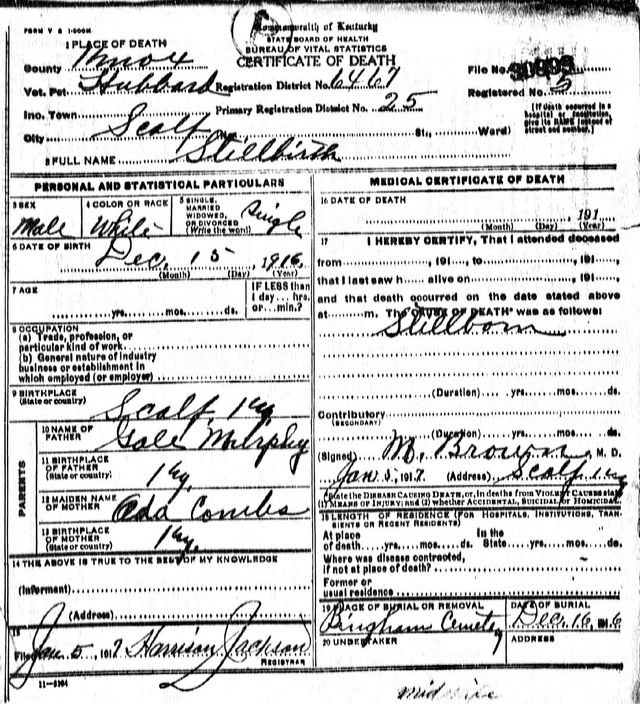 FORM V S 1-500M
Commonwealth of Kentucky
STATE BOARD OF HEALTH
BUREAU OF VITAL STATISTICS
CERTIFICATE OF DEATH
1 PLACE OF DEATH
County Knox
Vot. Pct. Hubbard Registration District No. 6467
File No.
Registered No. 5
Ino. Town Primary Registration District No. 25
[If death occurred in a hospital or institution, give its NAME instead of street and number.]
City Scalf St., Ward)
2 FULL NAME Stillbirth
PERSONAL AND STATISTICAL PARTICULARS
3 SEX Male
4 COLOR OR RACE White
5 SINGLE, MARRIED WIDOWED, OR DIVORCED (Write the word) Single
6 DATE OF BIRTH Dec. 15, 1916
(Month) (Day) (Year)
7 AGE
yrs. mos. ds.
IF LESS than 1 day... hrs. or... min.?
8 OCCUPATION
(a) Trade, profession, or particular kind of work
(b) General nature of industry business or establishment in which employed (or employer)
9 BIRTHPLACE (State or country) Scalf, Ky.
PARENTS
10 NAME OF FATHER Gale Murphy
11 BIRTHPLACE OF FATHER (State or country) Ky.
12 MAIDEN NAME OF MOTHER Oda Combs
13 BIRTHPLACE OF MOTHER (State or country) Ky.
14 THE ABOVE IS TRUE TO THE BEST OF MY KNOWLEDGE
(Informant)
(Address)
15
Filed Jan 5, 1917 Harrison Jackson
REGISTRAR
11-3184
MEDICAL CERTIFICATE OF DEATH
16 DATE OF DEATH
, 191
(Month) (Day) (Year)
17 I HEREBY CERTIFY, That I attended deceased
from , 191 , to , 191 ,
that I last saw h alive on , 191 ,
and that death occurred on the date stated above
at m. The CAUSE OF DEATH* was as follows:
Stillborn
(Duration) yrs. mos. ds.
Contributory
(SECONDARY)
(Duration) yrs. mos. ds.
(Signed) M. Brown M. D.
Jan 5, 1917 (Address) Scalf Ky
*State the DISEASE CAUSING DEATH, or, in deaths from VIOLENT CAUSES state (1) MEANS OF INJURY; and (2) whether ACCIDENTAL, SUICIDAL or HOMICIDAL.
18 LENGTH OF RESIDENCE (FOR HOSPITALS, INSTITUTIONS, TRANSIENTS OR RECENT RESIDENTS)
At place of death yrs. mos. ds. In the State yrs. mos. ds.
Where was disease contracted, if not at place of death?
Former or usual residence
19 PLACE OF BURIAL OR REMOVAL Bingham Cemetery
DATE OF BURIAL Dec. 16, 1916
20 UNDERTAKER
ADDRESS
midwife